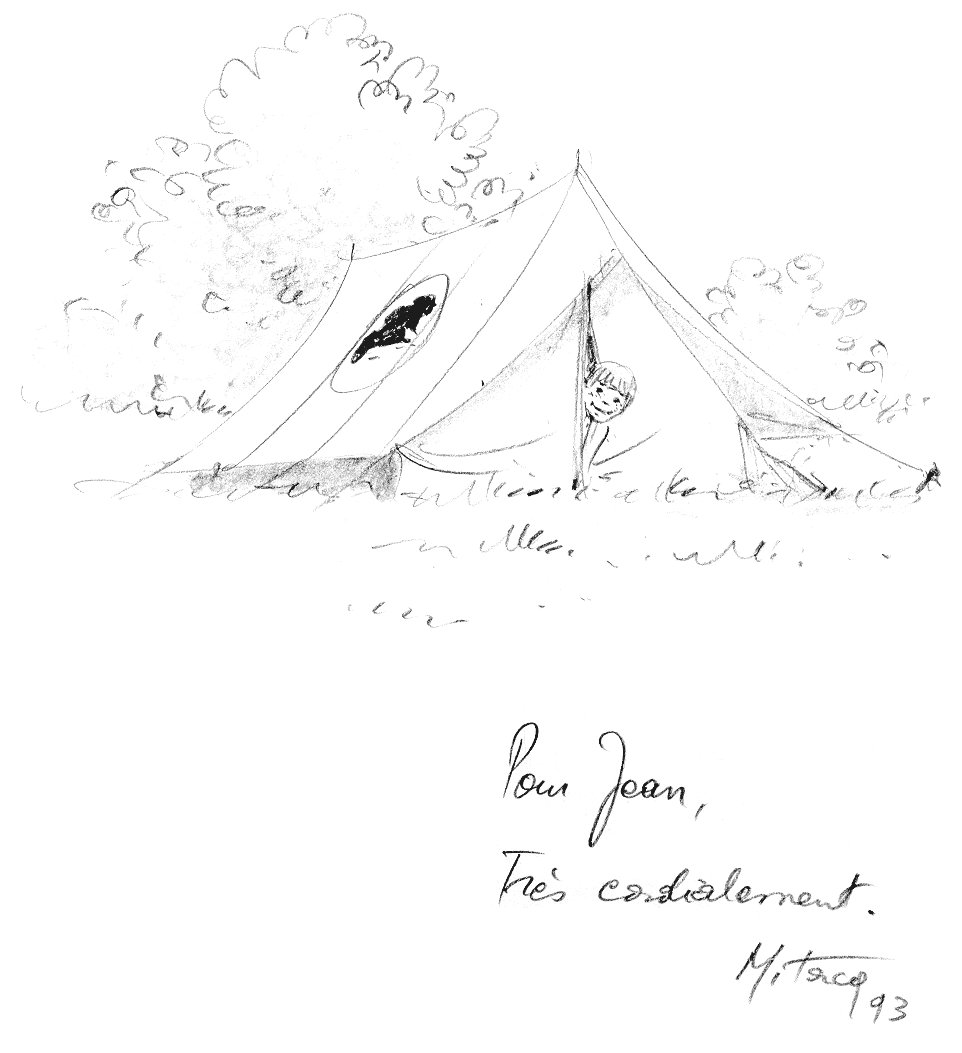 Pour Jean,
Très cordialement.
Mitacq 93